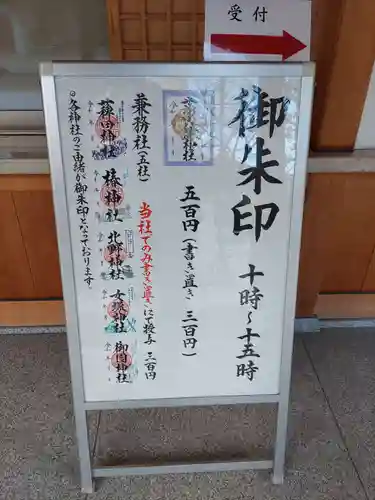 受付
御朱印 十時〜十五時
五百円(書き置き 三百円)
兼務社(五社)
当社でのみ書き置きにて授与 三百円
椿神社
北野神社
女 神社
御園神社
神社
◎各神社のご由緒が御朱印となっております。